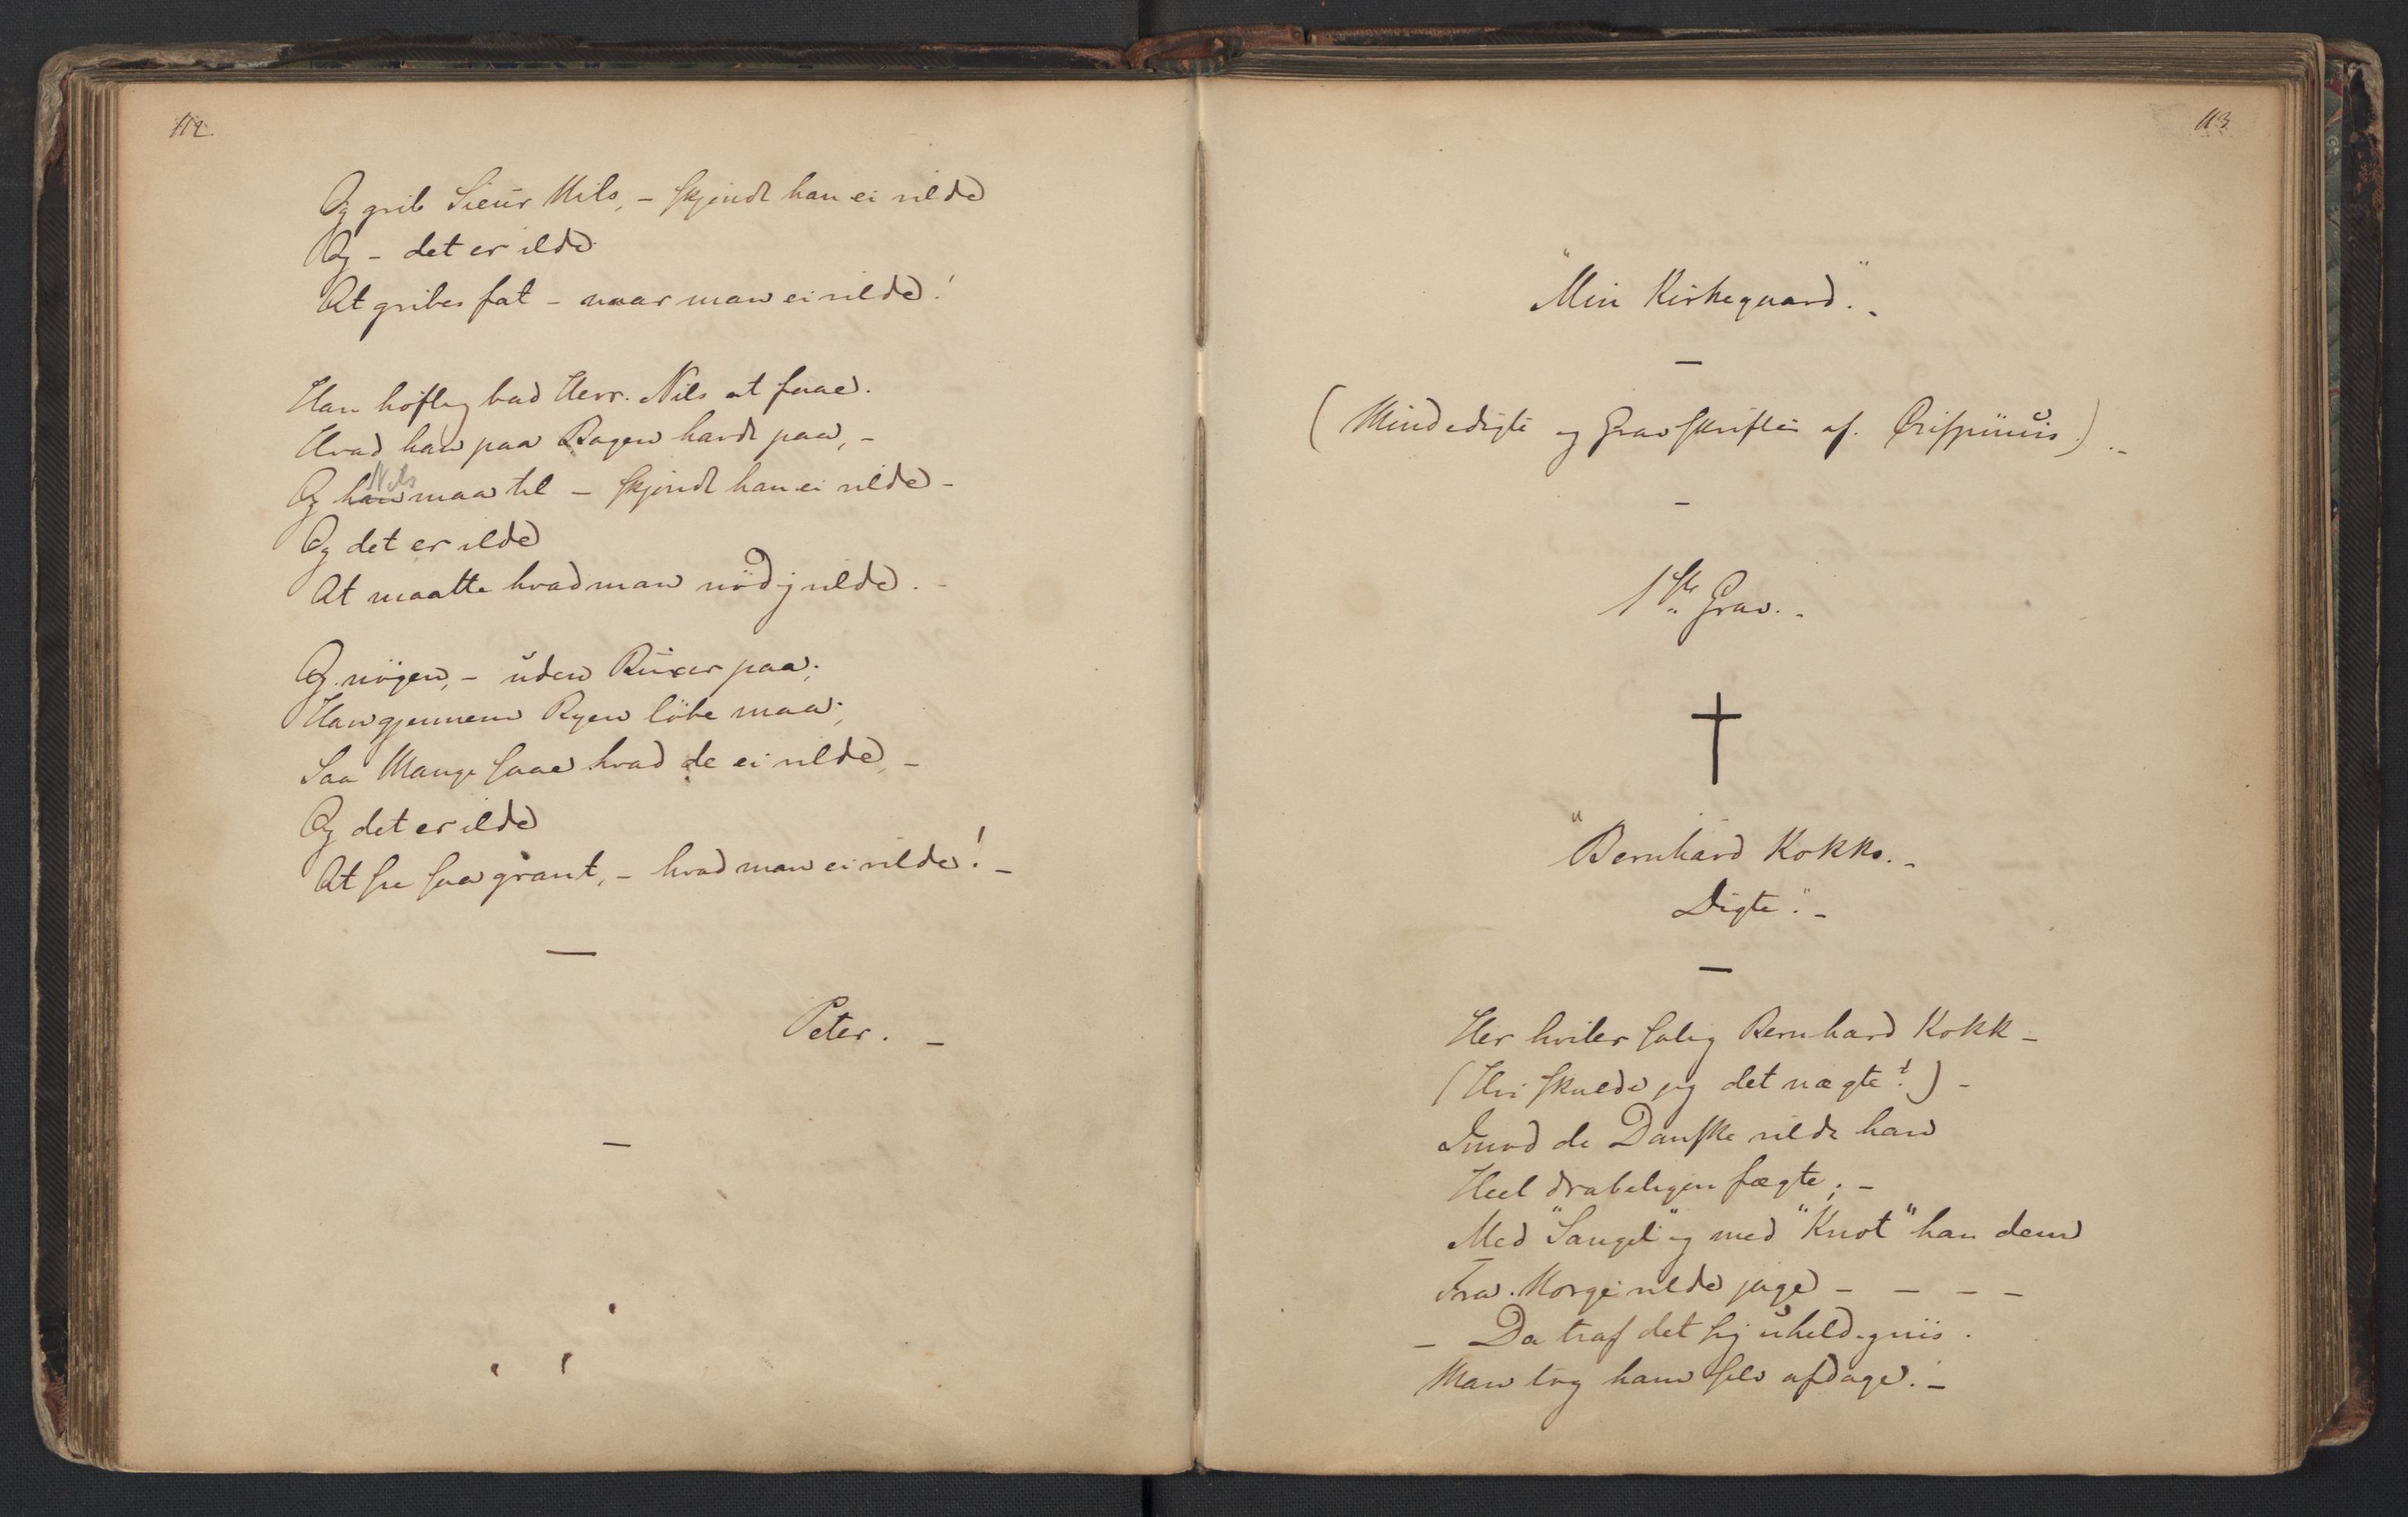 112.
Og greb Sieur Nils, – skjøndt han ei vilde
Og – det er ilde
At gribes fat – naar man ei vilde!
Han høflig bad Herr. Nils at faae.
Hvad han paa Bagen havde paa, –
Og han maa til – skjøndt han ei vilde –
Nils
Og det er ilde
At maatte hvad man nødig vilde. –
Og nøgen, – uden Buxer paa;
Han gjennem Byen løbe maa;
Saa Mange saae hvad de ei vilde, –
Og det er ilde
At see saa grant, – hvad man ei vilde! –
Peter. –
113
"Min Kirkegaard." –
(Mindedigte og Gravskrifter af. Crispinus.) –
1ste Grav. –
"Bernhard Kokks. –
Digte". –
Her hviler salig Bernhard Kokk –
(Hvi skulde jeg det nægte?) –
Imod de Danske vilde han
Heel drabeligen fægte; –
Med "Saugel" og med "Knot" han dem
Fra. Norge vilde jage – – – –
– Da traf det sig uheldigviis.
Man tog ham selv afdage. –